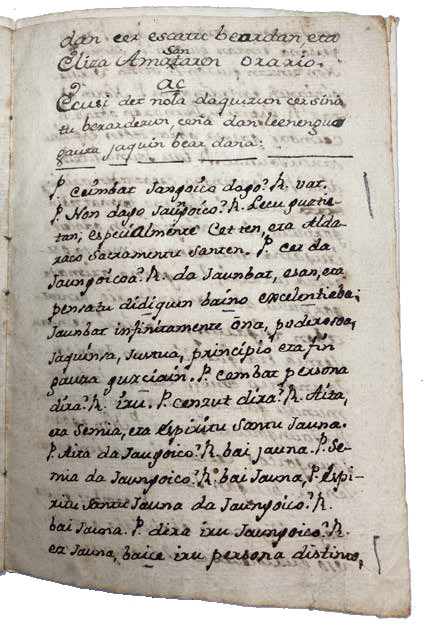 dan cer escatu beardan, eta
San
Eliza Amataren orario.
ac
Ecusi det nola daquizun cersina
tu berardezun, ceña dan leenengua
gauza jaquin bear dana:
P. ceimbat Jangoico dago? R. vat.
P. Non dago Jaungoico? R. Lecu guztie-
tan, especialmente Cet ten, eta Alda-
raco Sacramentu Santen. P. cer da
Jaungoicoa? R. da Jaunbat, esan, eta
pensatu didiquin baino excelentieba;
Jaunbat infinitamente ona, poderosoa,
Jaquinsa, Justua, principio eta fin
gauza guzciain. P. cembat persona
dira? R. iru. P. cenzut dira? R. Aita,
eta Semia, eta espiritu Santu Jauna.
P. Aita da Jaugoico? R. bai jauna. P. Se-
mia da Jaungoico? R. bai Jauna, P. espi-
ritu Santu Jauna da Jaungoico? R.
bai Jauna. P. dira iru Jaungoico? R.
ez Jauna, baice iru persona distinto,